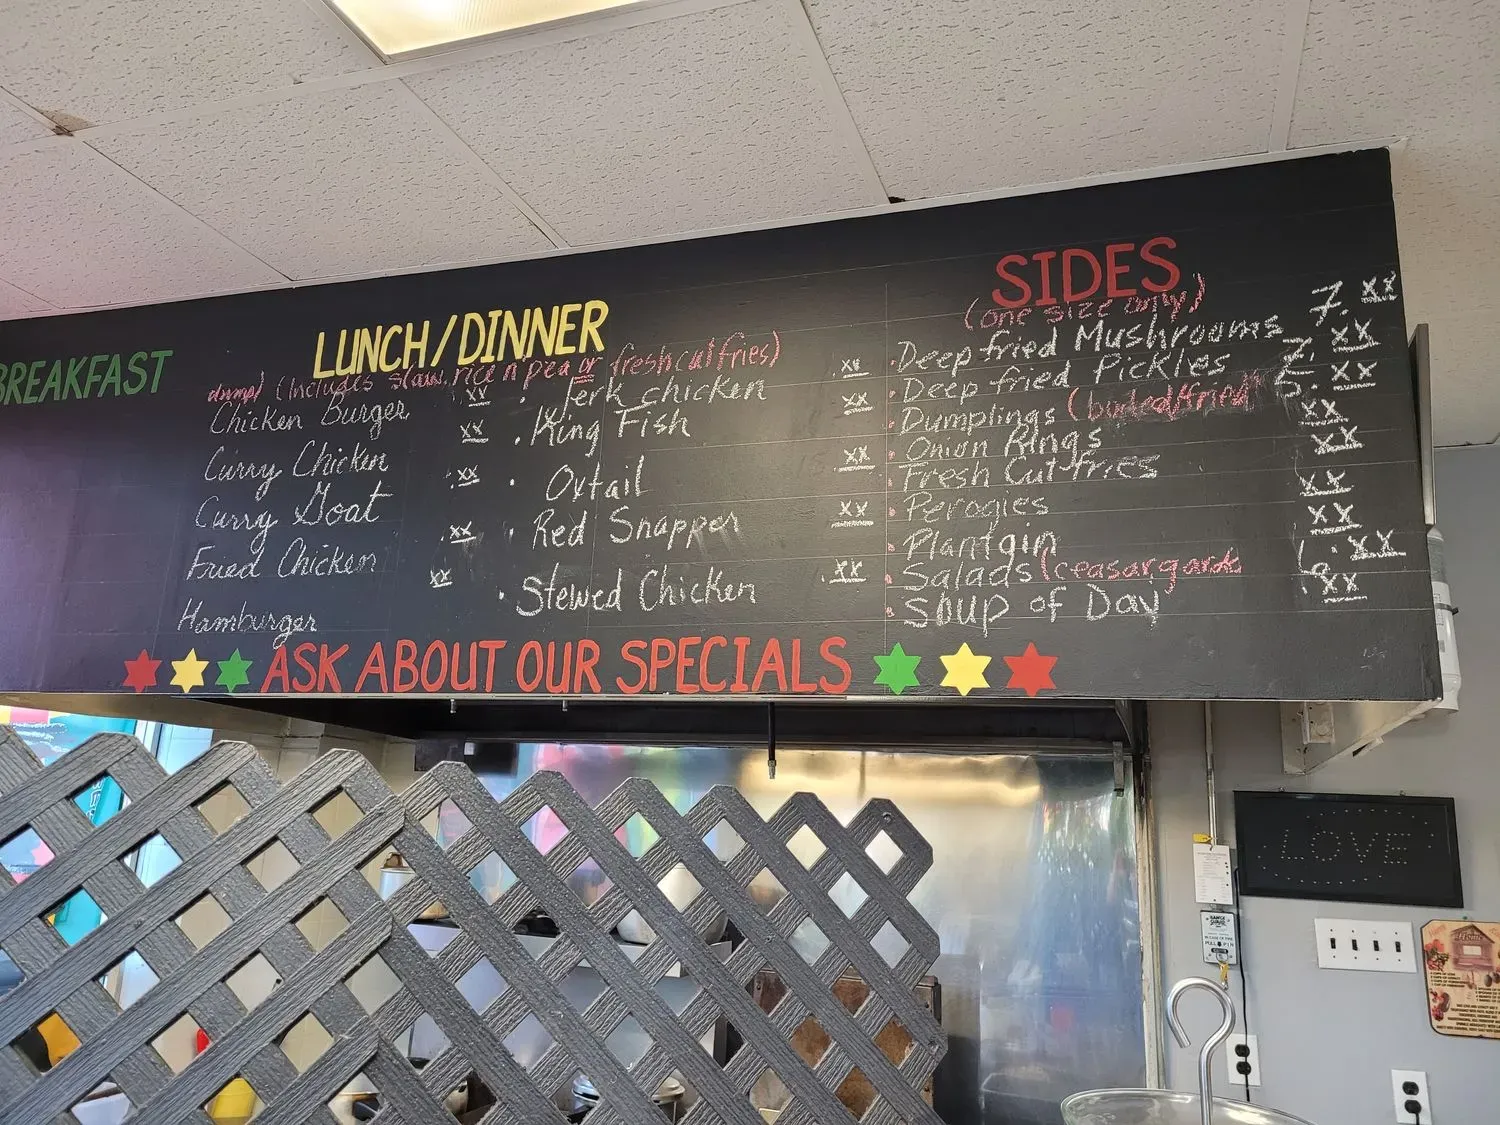 BREAKFAST
LUNCH/DINNER
(Includes slaw, rice n' pea or fresh cut fries)
Chicken Burger xx
Curry Chicken xx
Curry Goat xx
Fried Chicken xx
Hamburger xx
· Jerk chicken xx
· King Fish xx
· Oxtail xx
· Red Snapper xx
· Stewed Chicken xx
SIDES
(one size only)
· Deep fried Mushrooms 7.xx
· Deep fried Pickles 7.xx
· Dumplings (boiled/fried 5.xx
· Onion Rings xx
· Fresh Cut fries xx
· Perogies xx
· Plantain xx
· Salads (ceasar garde xx
· Soup of Day xx
ASK ABOUT OUR SPECIALS
LOVE
PULL PIN
Home